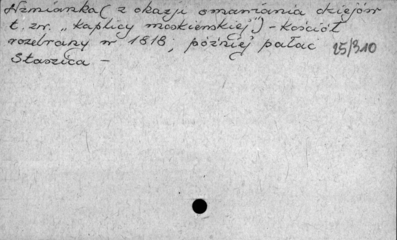 Wzmianka (z okazji omawiania dziejów
t. zw. „kaplicy moskiewskiej") - kościół
rozebrany w 1818, później pałac 25/310
Staszica -